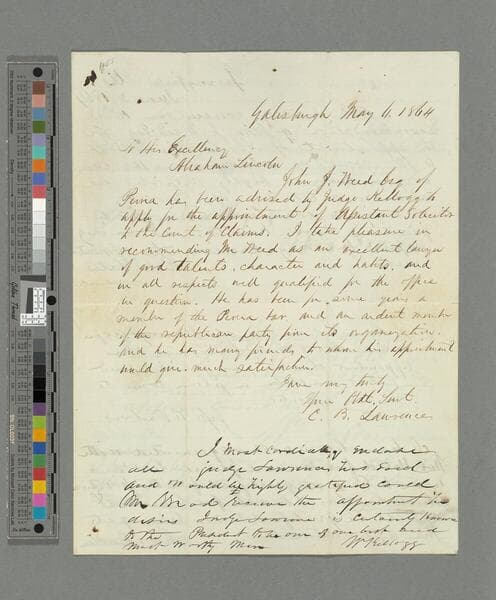 Galesburgh May 6, 1864
To His Excellency
Abraham Lincoln
John J. Weed Esq of
Peoria has been advised by Judge Kellogg to
apply for the appointment of Assistant Solicitor
to the Court of Claims. I take pleasure in
recommending Mr Weed as an excellent lawyer
of good talents, character and habits, and
in all respects well qualified for the office
in question. He has been for some years a
member of the Peoria bar and an ardent member
of the republican party from its organization.
and he has many friends to whom his appointment
would give much satisfaction.
Yours very truly
Your Obt. Servt.
C. B. Lawrence
I most cordially endorse
all Judge Lawrence has said
and would be highly gratified could
Mr Weed Receive the appointment he
desires Judge Lawrence is certainly known
to the President to be one of our best and
most worthy men W Kellogg
Golden Thread